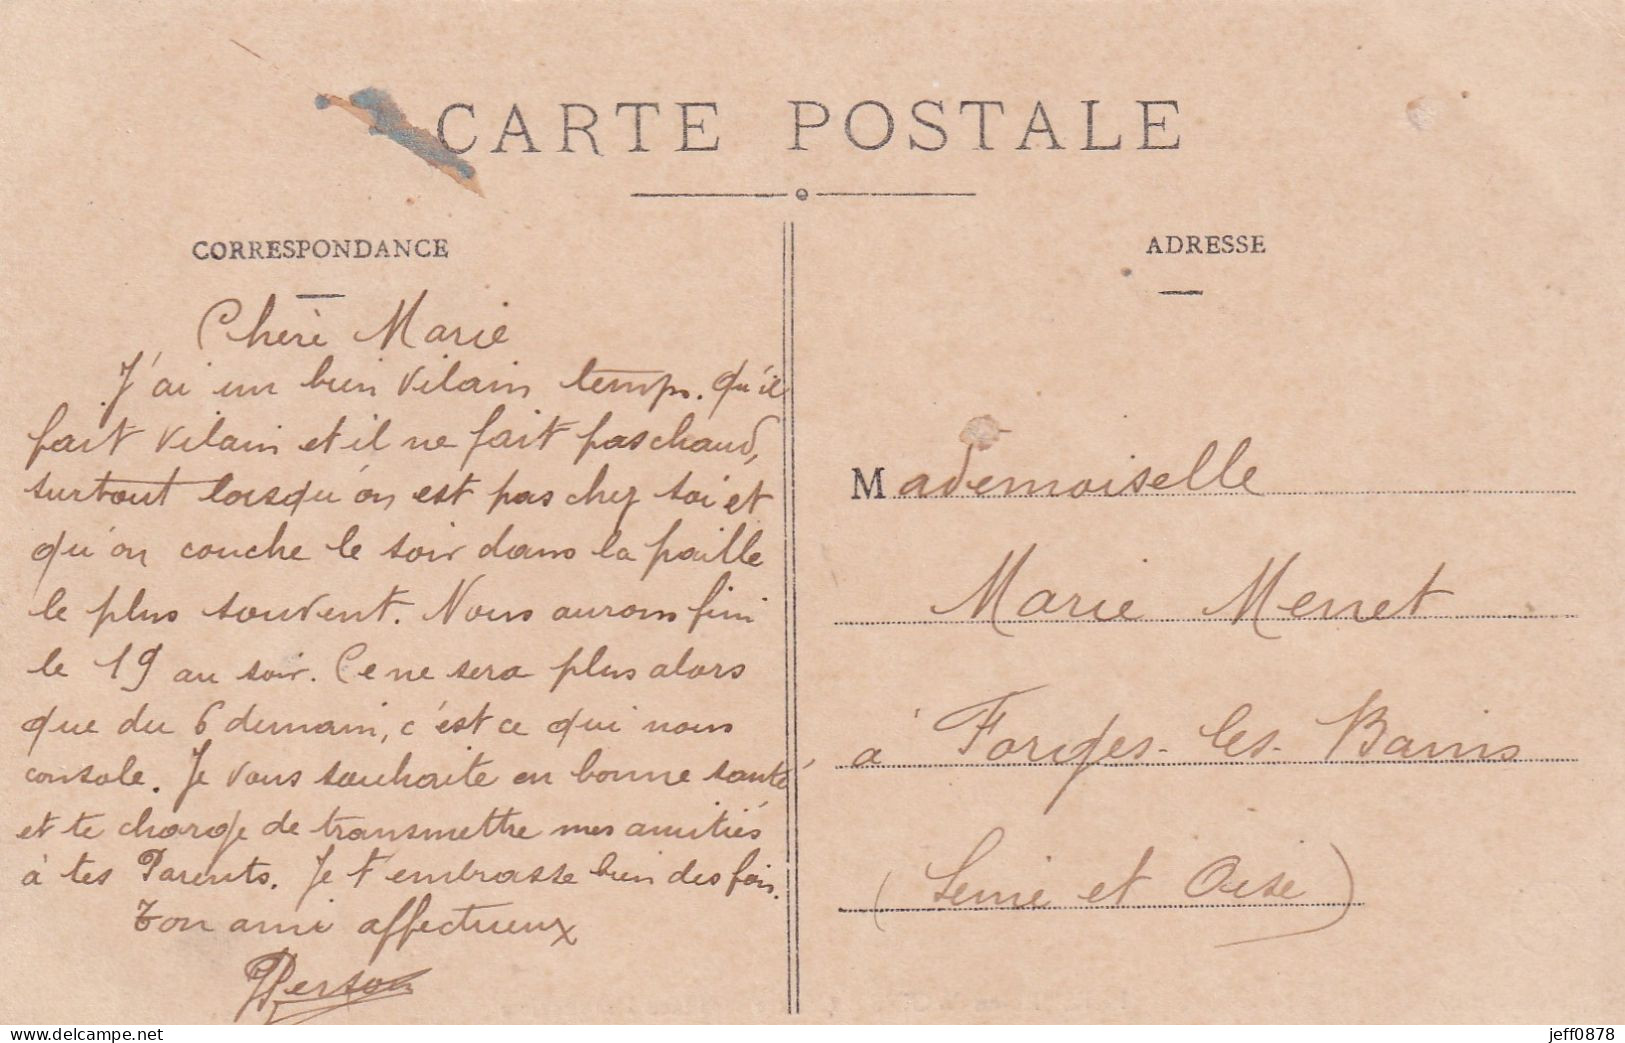 CARTE POSTALE
CORRESPONDANCE
ADRESSE
Chère Marie
J'ai un bien vilain temps. Qu'il
fait vilain et il ne fait pas chaud,
surtout lorsqu'on est pas chez soi et
qu'on couche le soir dans la paille
le plus souvent. Nous aurons fini
le 19 au soir. Ce ne sera plus alors
que du 6 demain, c'est ce qui nous
console. Je vous souhaite en bonne santé
et te charge de transmettre mes amitiés
à tes Parents. Je t'embrasse bien des fois.
Ton ami affectueux
Person
Mademoiselle
Marie Menet
à Forges-les-Bains
(Seine et Oise)
delcampe.net
jeff0878